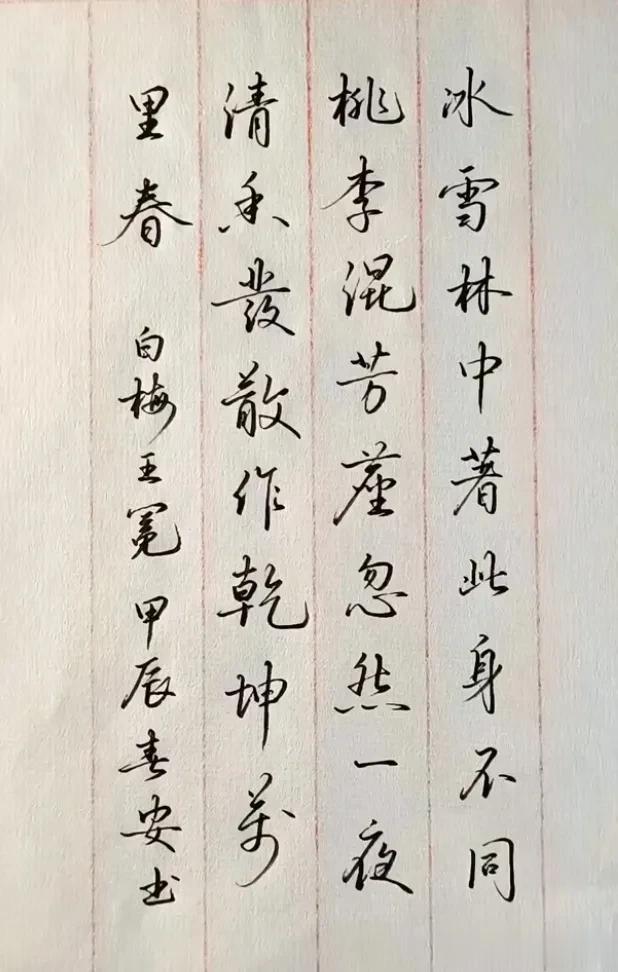 冰雪林中著此身不同
桃李混芳塵忽然一夜
清香發散作乾坤萬
里春 白梅王冕 甲辰春安书